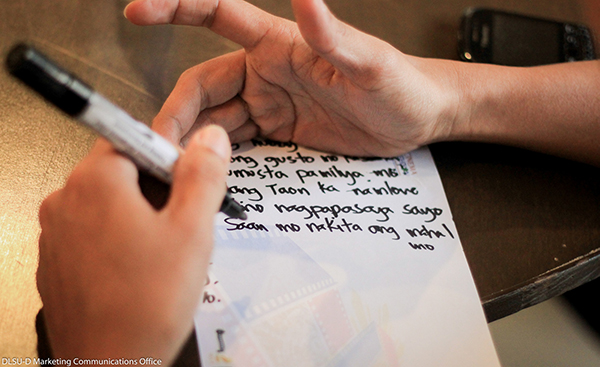 ang gusto mo
umusta pamilya mo
ang Taon ka nainlove
ino nagpapasaya sayo
Saan mo nakita ang mahal
mo
DLSU-D Marketing Communications Office